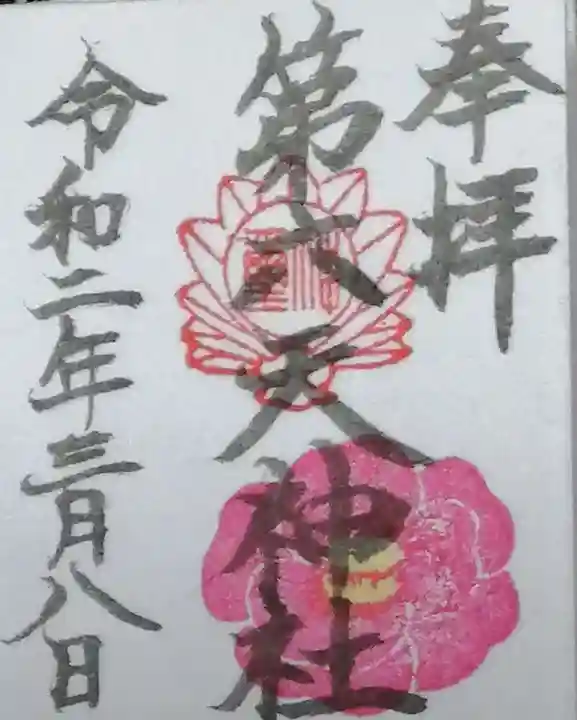 奉拝
第六天神社
令和二年三月八日